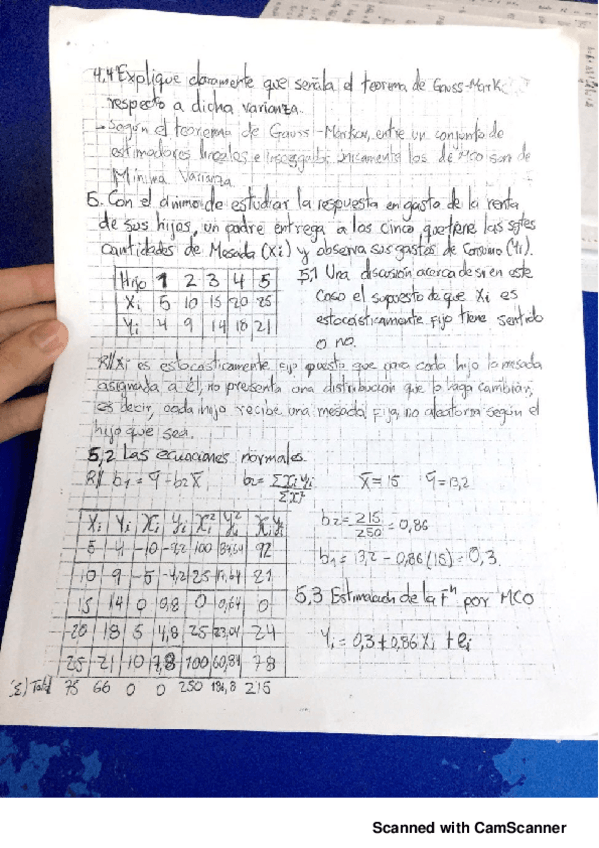 4.4 Explique claramente que señala el teorema de Gauss-Mark
respecto a dicha varianza.
- Según el teorema de Gauss-Markov, entre un conjunto de
estimadores lineales e insesgados únicamente los de MCO son de
Mínima Varianza
5. Con el ánimo de estudiar la respuesta en gasto de la renta
de sus hijos, un padre entrega a los cinco, que tiene las sgtes
cantidades de Mesada (Xi) y observa sus gastos de Consumo (Yi).
Hijo 1 2 3 4 5
Xi 5 10 15 20 25
Yi 4 9 14 18 21
5,1 Una discusión acerca de si en este
caso el supuesto de que Xi es
estocásticamente fijo tiene sentido
o no.
R// Xi es estocásticamente fijo puesto que para cada hijo la mesada
asignada a él, no presenta una distribución que lo haga cambiar,
es decir, cada hijo recibe una mesada fija, no aleatoria según el
hijo que sea.
5,2 Las ecuaciones normales.
R// b1 = Ȳ - b2X̄ b2 = Σxiyi / Σx² X̄ = 15 Ȳ = 13,2
Xi Yi xi yi xi² yi² xiyi
5 4 -10 -9,2 100 84,64 92
10 9 -5 -4,2 25 17,64 21
15 14 0 0,8 0 0,64 0
20 18 5 4,8 25 23,04 24
25 21 10 7,8 100 60,84 78
(Σ) Total 75 66 0 0 250 186,8 215
b2 = 215 / 250 = 0,86
b1 = 13,2 - 0,86(15) = 0,3
5,3 Estimación de la Fn por MCO
Yi = 0,3 + 0,86 Xi + ei
Scanned with CamScanner